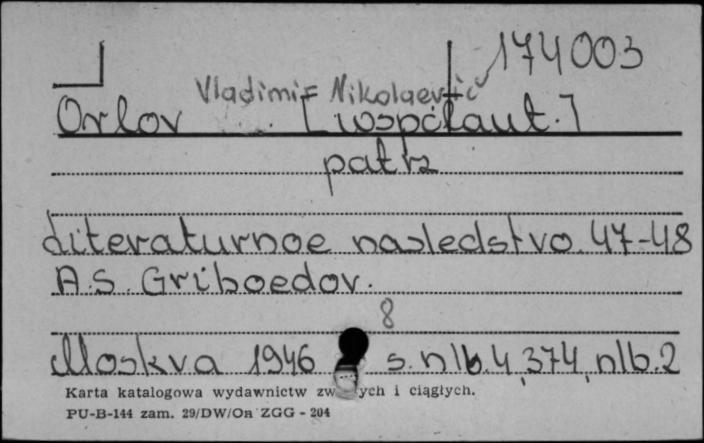 174003
Vladimir Nikolaevič
Orlov [współaut.]
patrz
Literaturnoe nasledstvo. 47-48
A.S. Griboedov.
8
Moskva 1946 s. nlb. 4, 374, nlb. 2
Karta katalogowa wydawnictw ych i ciągłych.
PU-B-144 zam. 29/DW/On ZGG - 204